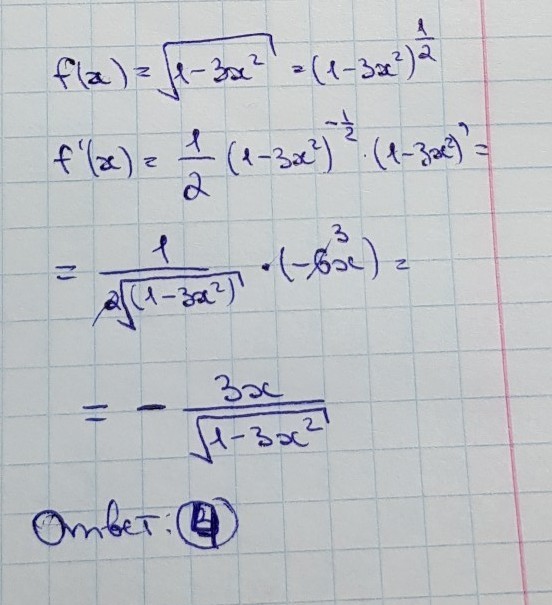 f(x) = √(1-3x²) = (1-3x²)^(1/2)
f'(x) = 1/2 (1-3x²)^(-1/2) · (1-3x²)' =
= 1/(2√((1-3x²))) · (-6x) 3 =
= - 3x/√(1-3x²)
Ответ: 4